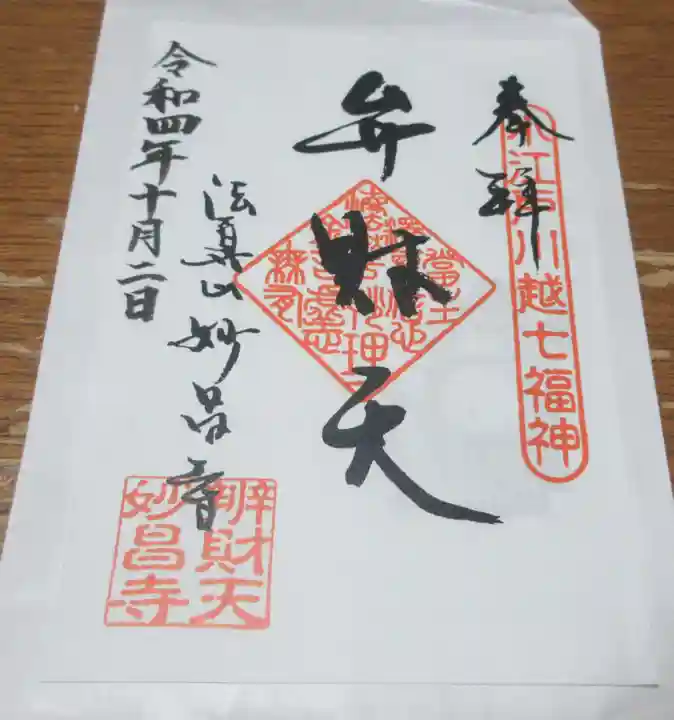 奉拝
小江戸川越七福神
弁財天
法真山妙昌寺
令和四年十月二日
辨財天
妙昌寺